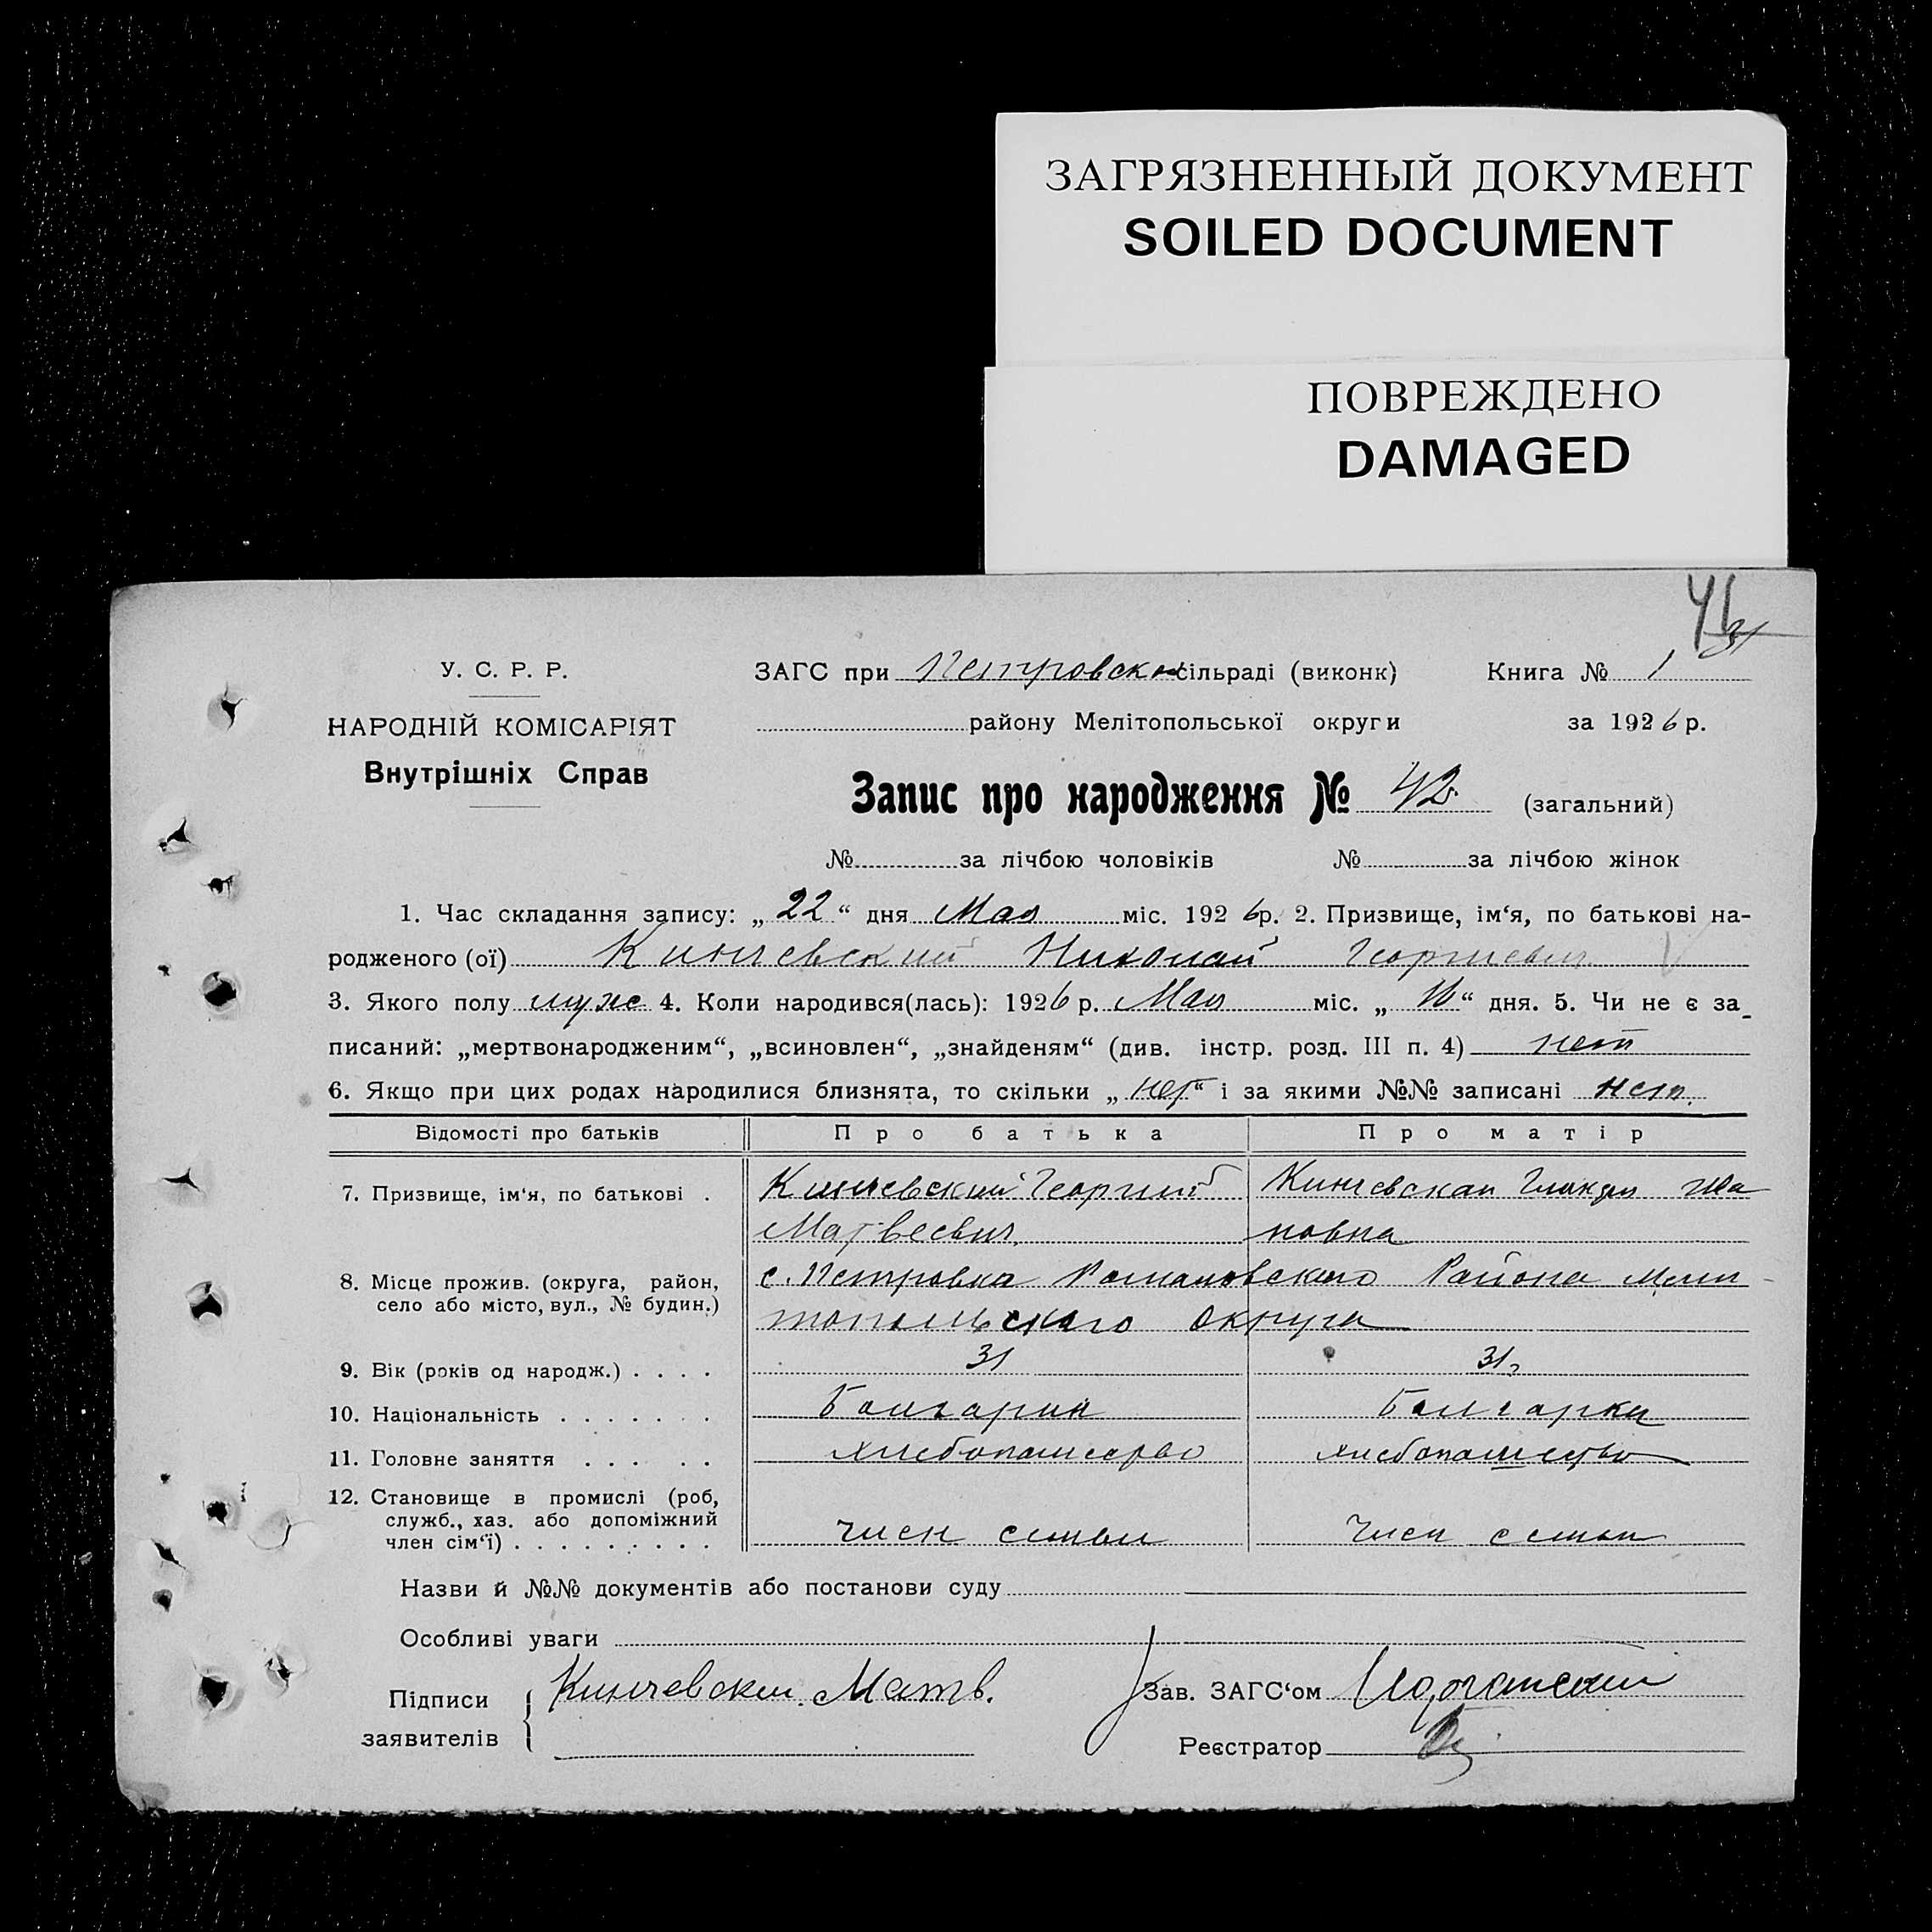 ЗАГРЯЗНЕННЫЙ ДОКУМЕНТ
SOILED DOCUMENT
ПОВРЕЖДЕНО
DAMAGED
46
31
У. С. Р. Р.
НАРОДНІЙ КОМІСАРІЯТ
Внутрішніх Справ
ЗАГС при Петровской сільраді (виконк) Книга № 1
району Мелітопольської округи за 1926 р.
Запис про народження № 42 (загальний)
№ за лічбою чоловіків № за лічбою жінок
1. Час складання запису: „ 22 “ дня Мая міс. 1926 р. 2. Призвище, ім‘я, по батькові на-
родженого (ої) Кинчевский Николай Георгиевич
3. Якого полу муже 4. Коли народився(лась): 1926 р. Мая міс. „ 16 “ дня. 5. Чи не є за-
писаний: „мертвонародженим“, „всиновлен“, „знайденям“ (див. інстр. розд. III п. 4) нет
6. Якщо при цих родах народилися близнята, то скільки „ нет “ і за якими №№ записані нет.
Відомості про батьків Про батька Про матір
7. Призвище, ім‘я, по батькові . Кинчевский Георгий Кинчевская Ива
Матвеевич. новна
8. Місце прожив. (округа, район, с. Петровка Романовского Района Мели-
село або місто, вул., № будин.) топольского округа
9. Вік (років од народж.) . . . . 31 31
10. Національність . . . . . . . Болгарин Болгарка
11. Головне заняття . . . . . хлебопашество хлебопашество
12. Становище в промислі (роб,
служб., хаз. або допоміжний
член сім‘ї) . . . . . . . . . член семьи член семьи
Назви й №№ документів або постанови суду
Особливі уваги
Підписи Кинчевский Матв. Зав. ЗАГС‘ом
заявителів Реєстратор